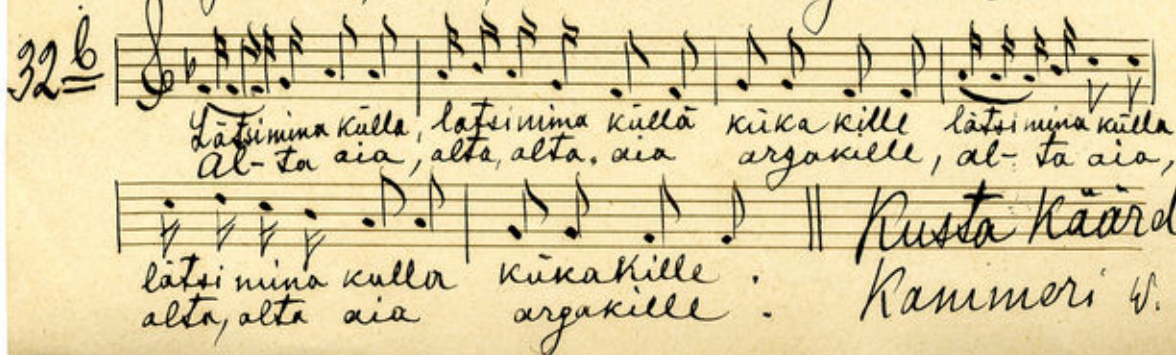 32 b
Lätsi mina külla, lätsi mina küllä küka kille lätsi mina külla
Al-ta aia, alta, alta. aia argakille, al-ta aia,
lätsi mina kulla kükakille.
alta, alta aia argakille.
Kusta Käärd
Kammeri W.